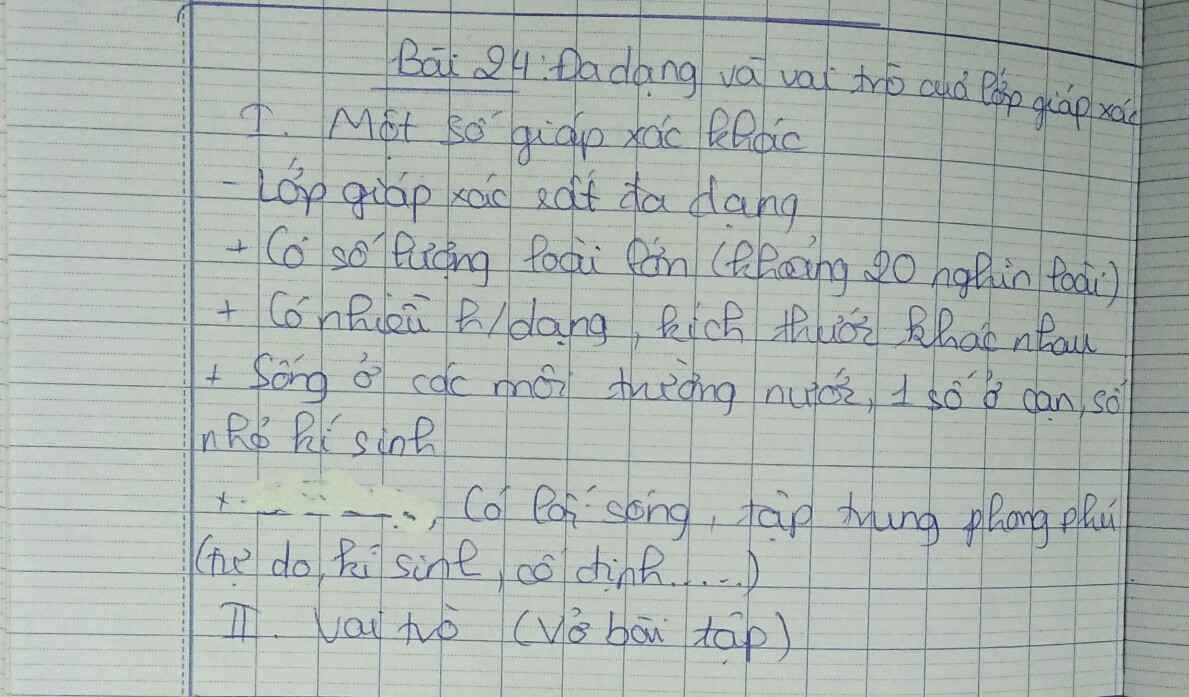 Bài 24: Đa dạng và vai trò của lớp giáp xác
I. Một số giáp xác khác
- Lớp giáp xác rất đa dạng
+ Có số lượng loài lớn (khoảng 20 nghìn loài)
+ Có nhiều h/dạng, kích thước khác nhau
+ Sống ở các môi trường nước, 1 số ở cạn, số
nhỏ kí sinh
+ , Có lối sống, tập trung phong phú
(tự do, kí sinh, cố định.....)
II. Vai trò (Vở bài tập)